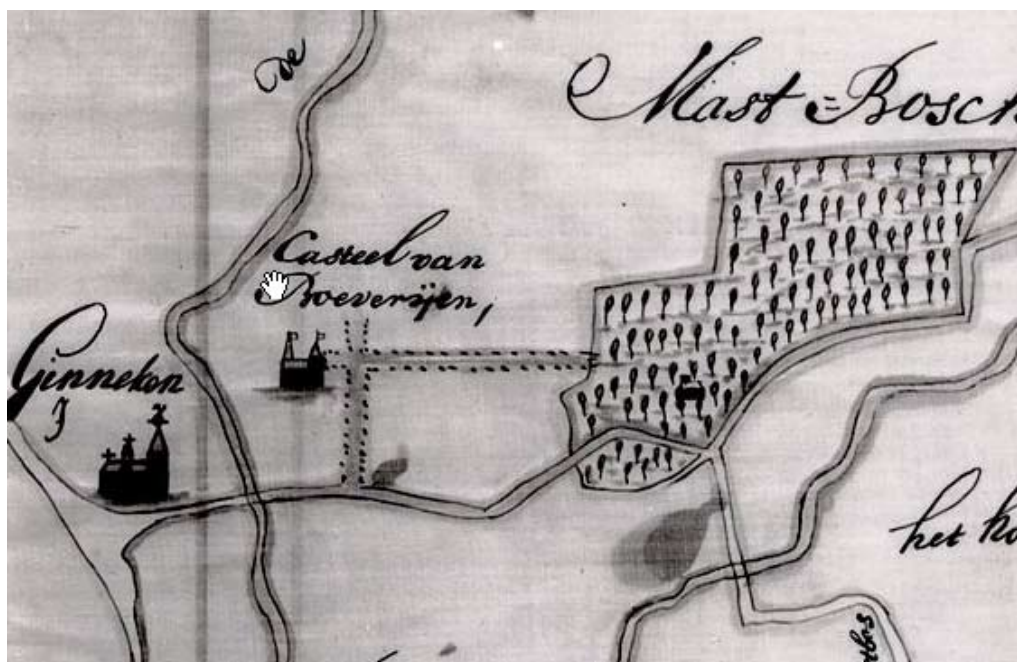 De
Mast=Bosch
Casteel van
Boeverijen,
Ginneken
J
het